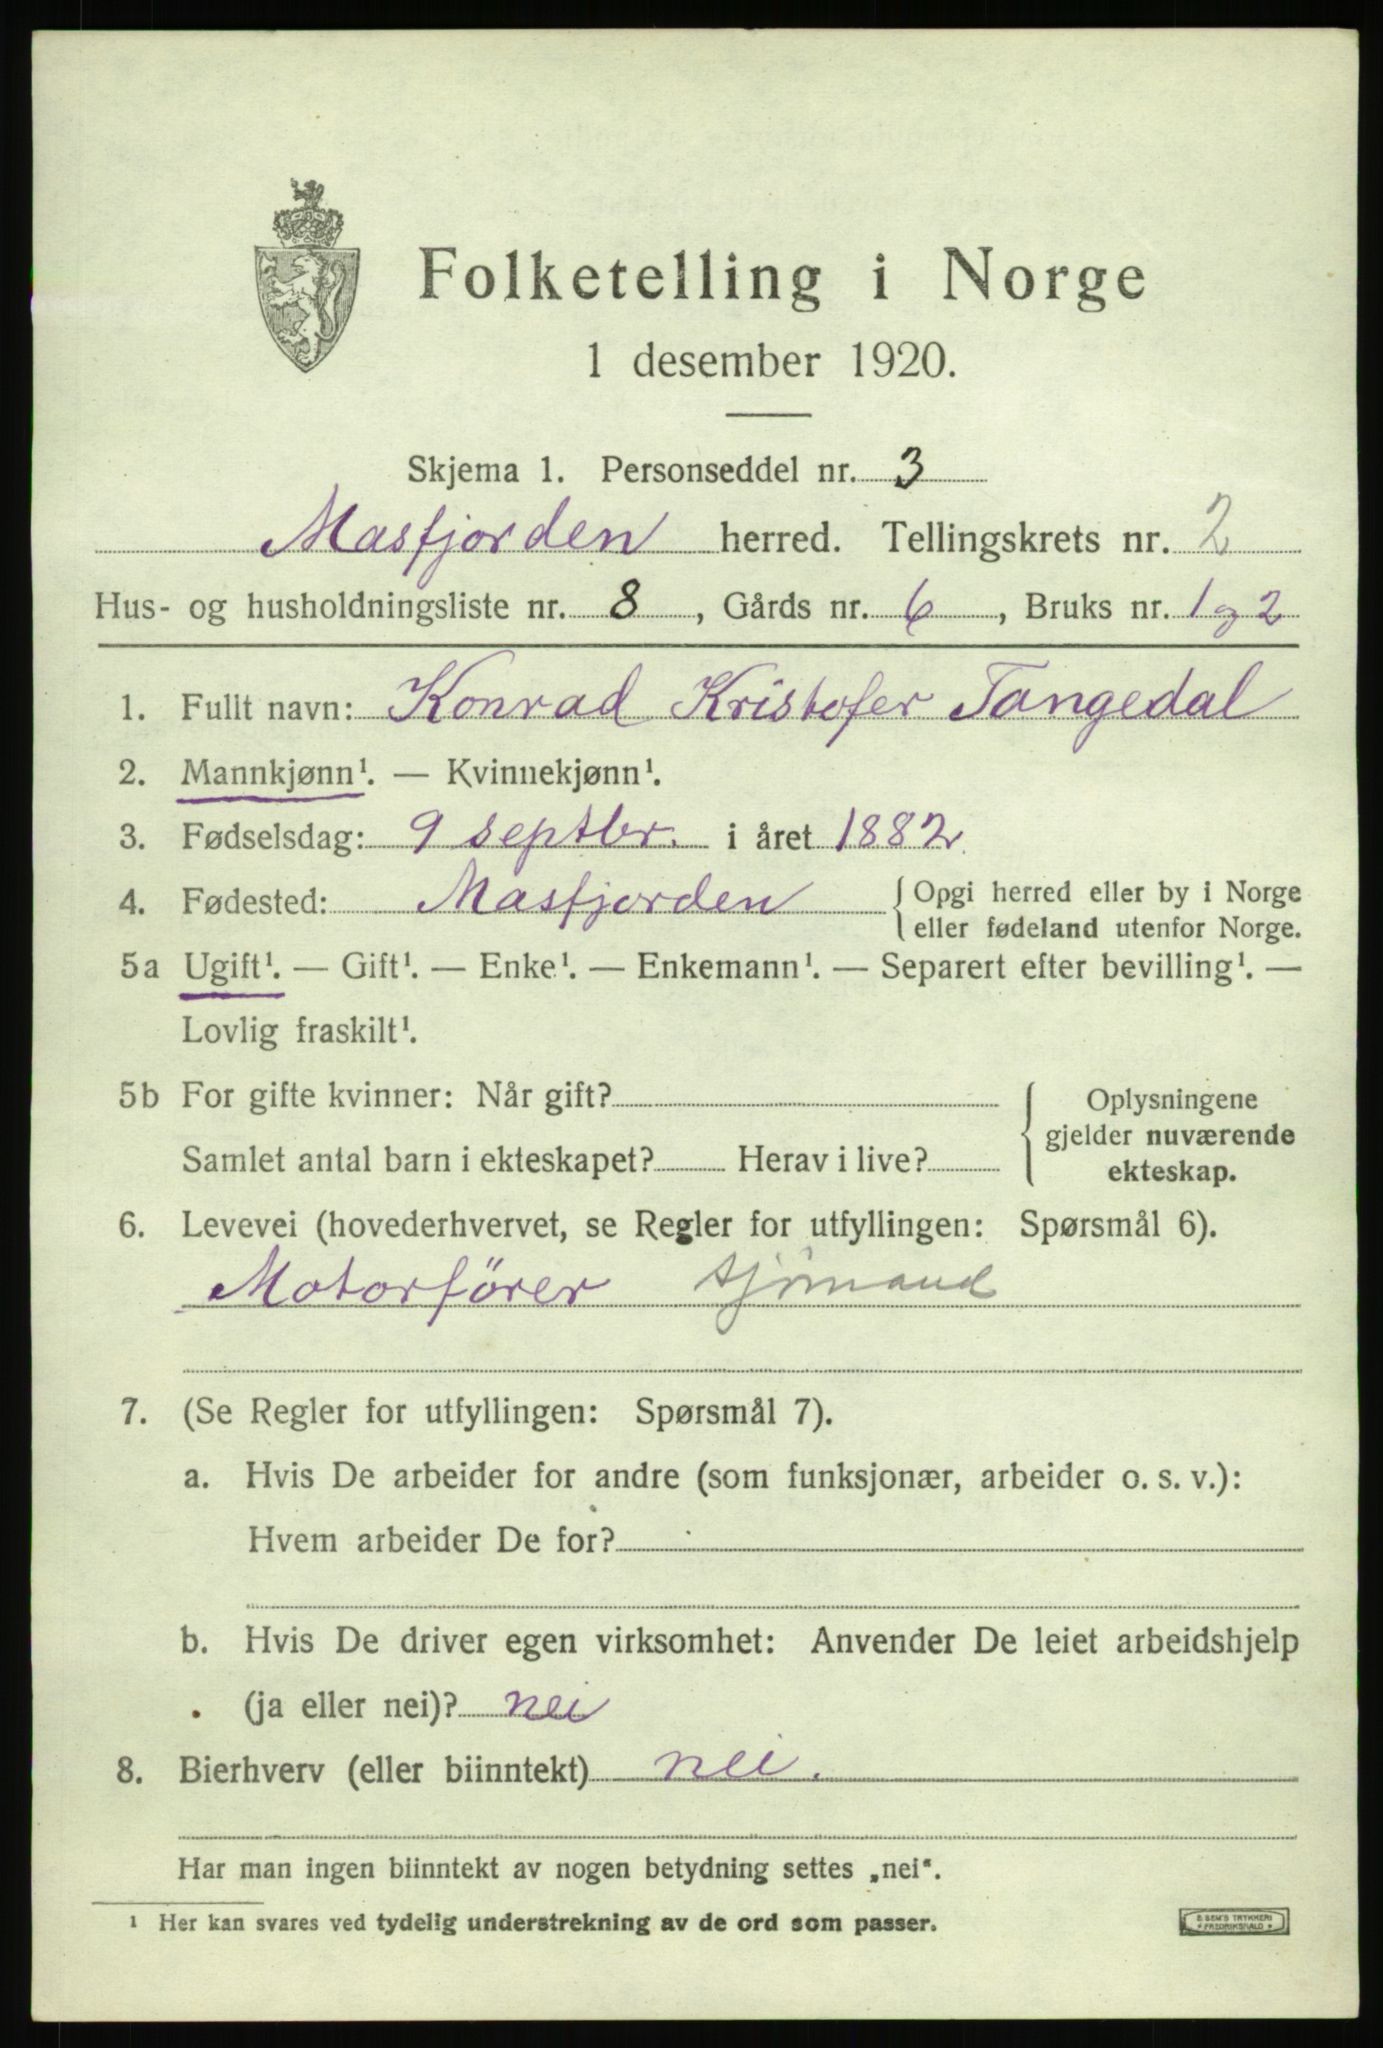 Folketelling i Norge
1 desember 1920.
Skjema 1. Personseddel nr. 3
Masfjorden herred. Tellingskrets nr. 2
Hus- og husholdningsliste nr. 8, Gårds nr. 6, Bruks nr. 1 og 2
1. Fullt navn: Konrad Kristofer Tangedal
2. Mannkjønn¹. — Kvinnekjønn¹.
3. Fødselsdag: 9 septbr. i året 1882
4. Fødested: Masfjorden { Opgi herred eller by i Norge
eller fødeland utenfor Norge.
5a Ugift¹. — Gift¹. — Enke¹. — Enkemann¹. — Separert efter bevilling¹. —
Lovlig fraskilt¹.
5b For gifte kvinner: Når gift?
Samlet antal barn i ekteskapet? Herav i live?
{ Oplysningene
gjelder nuværende
ekteskap.
6. Levevei (hovederhvervet, se Regler for utfyllingen: Spørsmål 6).
Motorförer sjömand
7. (Se Regler for utfyllingen: Spørsmål 7).
a. Hvis De arbeider for andre (som funksjonær, arbeider o. s. v.):
Hvem arbeider De for?
b. Hvis De driver egen virksomhet: Anvender De leiet arbeidshjelp
(ja eller nei)? nei
8. Bierhverv (eller biinntekt) nei.
Har man ingen biinntekt av nogen betydning settes „nei“.
¹ Her kan svares ved tydelig understrekning av de ord som passer.
E. SEM'S TRYKKERI
FREDRIKSHALD